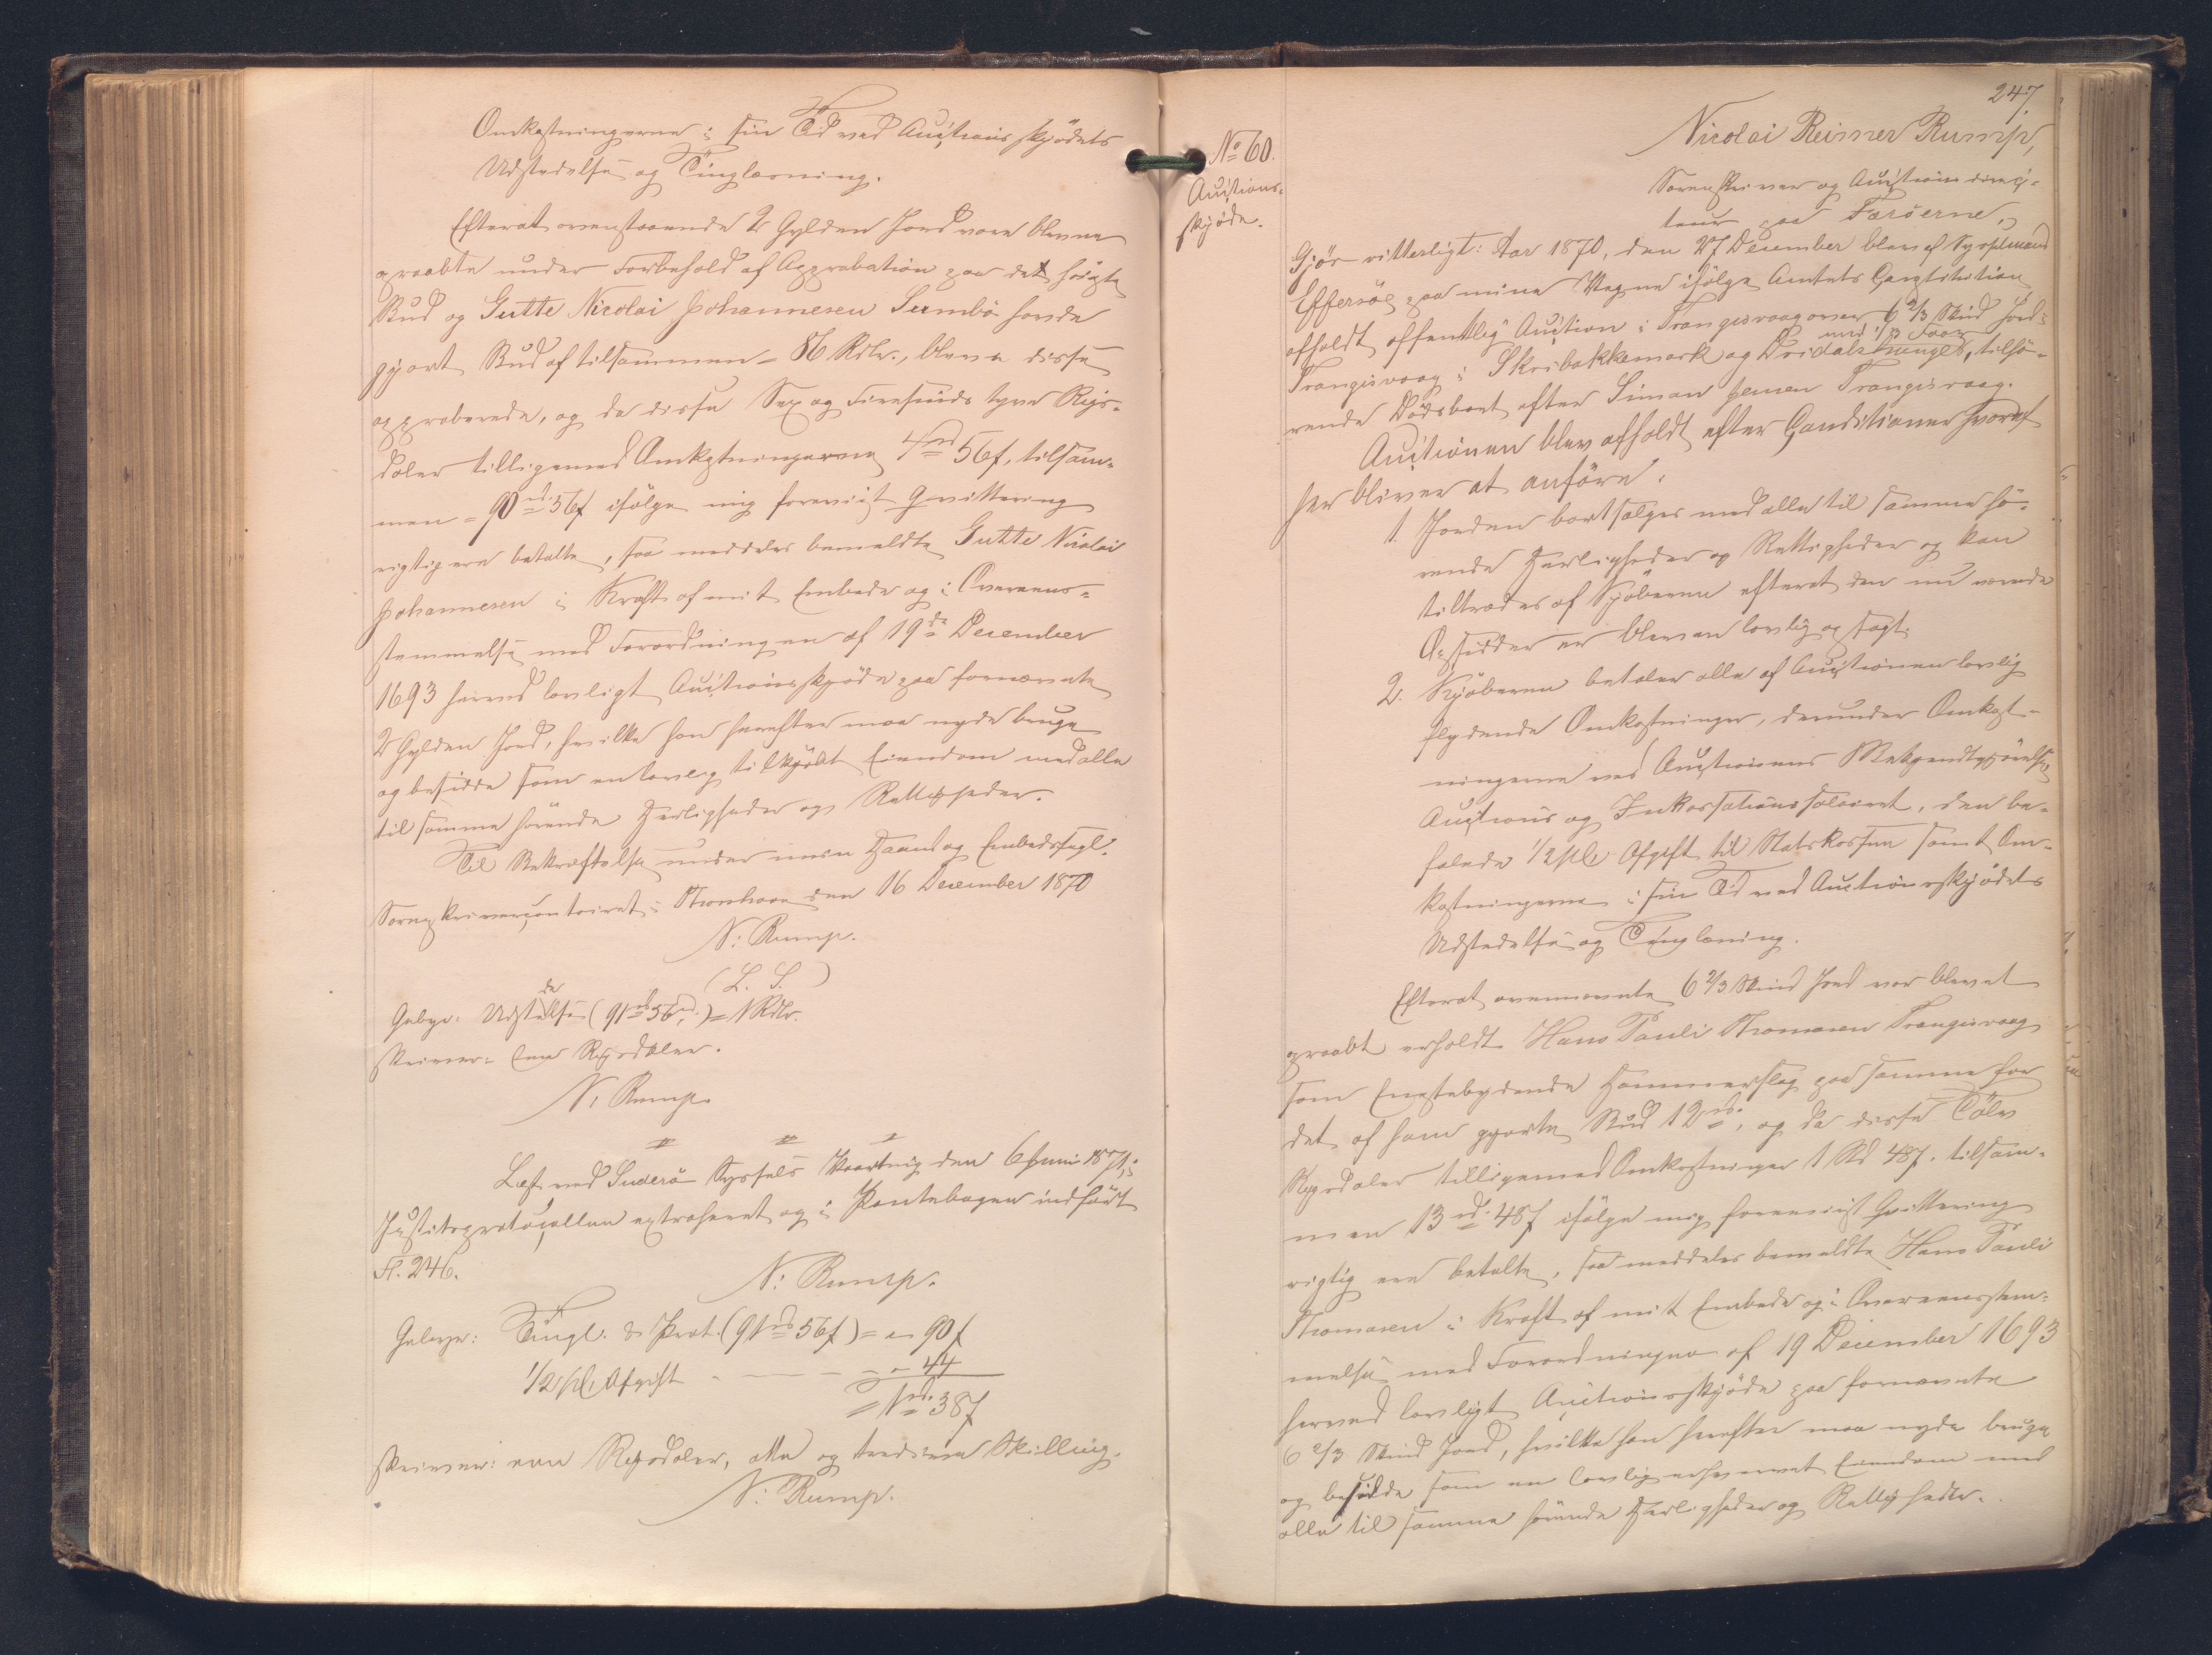 Omkostningerne i sin Tid ved Auctionsskjödets
Udstedelse og Tinglæsning.
Efterat ovenstaaende 2 Gylden Jord vare blevne
opraabte under Forbehold af Approbation paa det höieste
Bud og Gutte Nicolai Johannesen Sumbö havde
gjort Bud af tilsammen = 86 Rdlr., bleve disse
approberede, og da disse Sex og Firesindstyve Rigs-
daler tilligemed Omkostningerne 4 rd 56 f, tilsam-
men = 90 rd 56 f ifölge mig foreviist Qvittering
rigtig ere betalte, saa meddeles bemeldte Gutte Nicolai
Johannesen i Kraft af mit Embede og i Overeens-
stemmelse med Forordningen af 19de December
1693 herved lovligt Auctionsskjöde paa fornævnte
2 Gylden Jord, hvilke han herefter maa nyde bruge
og besidde som en lovlig tilkjöbt Eiendom med alle
til samme hörende Herligheder og Rettigheder.
Til Bekræftelse under min Haand og Embedssegl.
Sorenskrivercontoiret i Thorshavn den 16 December 1870
N: Rump.
(L. S.)
Gebyr: Udstedelse (91 rd 56 f.) = 1 Rdlr.
skriver: een Rigsdaler.
N: Rump.
Læst ved Suderö Syssels Vaarting den 6 Juni 1871, i
Justitsprotocollen extraheret og i Pantebogen indfört
Fl. 246.
N: Rump.
Gebyr: Tingl. & Prot. (91 rd 56 f) = " 90 f
1/2 pCt. Afgift - - - " 44
= 1 rd. 38 f
skriver: een Rigsdaler, otte og tredive Skilling.
N: Rump.
247.
No 60.
Auctions-
skjöde.
Nicolai Reimer Rump,
Sorenskriver og Auctionsdirec-
teur paa Færöerne,
Gjör vitterligt: Aar 1870, den 27 December blev af Sysselmand
Effersöe paa mine Vegne ifölge Amtets Constitution
afholdt offentlig Auction i Trangisvaag over 6 2/3 Skind Jord i
med 1/3 Faar
Trangisvaag i Skribakkemark og tilhö-
rende Dödsboet efter Simon Jensen Trangisvaag.
Auctionen blev afholdt efter Conditioner hvoraf
her bliver at anföre:
1. Jorden bortsælges med alle til samme hö-
rende Herligheder og Rettigheder og kan
tiltrædes af Kjöberen efterat den nu værende
Opsidder er bleven lovlig opsagt.
2. Kjöberen betaler alle af Auctionen lovlig
flydende Omkostninger, derunder Omkost-
ningerne ved Auctionens Bekjendtgjörelse,
Auctions og Inkassationssalairet, den be-
falede 1/2 pCt. Afgift til Statskassen samt Om-
kostningerne i sin Tid ved Auctionsskjödets
Udstedelse og Tinglæsning.
Efterat ovennævnte 6 2/3 Skind Jord var blevet
opraabt erholdt Hans Pauli Thomasen Trangisvaag
som Enestebydende Hammerslag paa samme for
det af ham gjorte Bud 12 rd., og da disse Tölv
Rigsdaler tilligemed Omkostninger 1 Rd 48 f. tilsam-
men 13 rd. 48 f ifölge mig foreviist Qvittering
rigtig ere betalte, saa meddeles bemeldte Hans Pauli
Thomasen i Kraft af mit Embede og i Overeensstem-
melse med Forordningen af 19 December 1693
herved lovligt Auctionsskjöde paa fornævnte
6 2/3 Skind Jord, hvilke han herefter maa nyde bruge
og besidde som en lovlig erhvervet Eiendom med
alle til samme hörende Herligheder og Rettigheder.